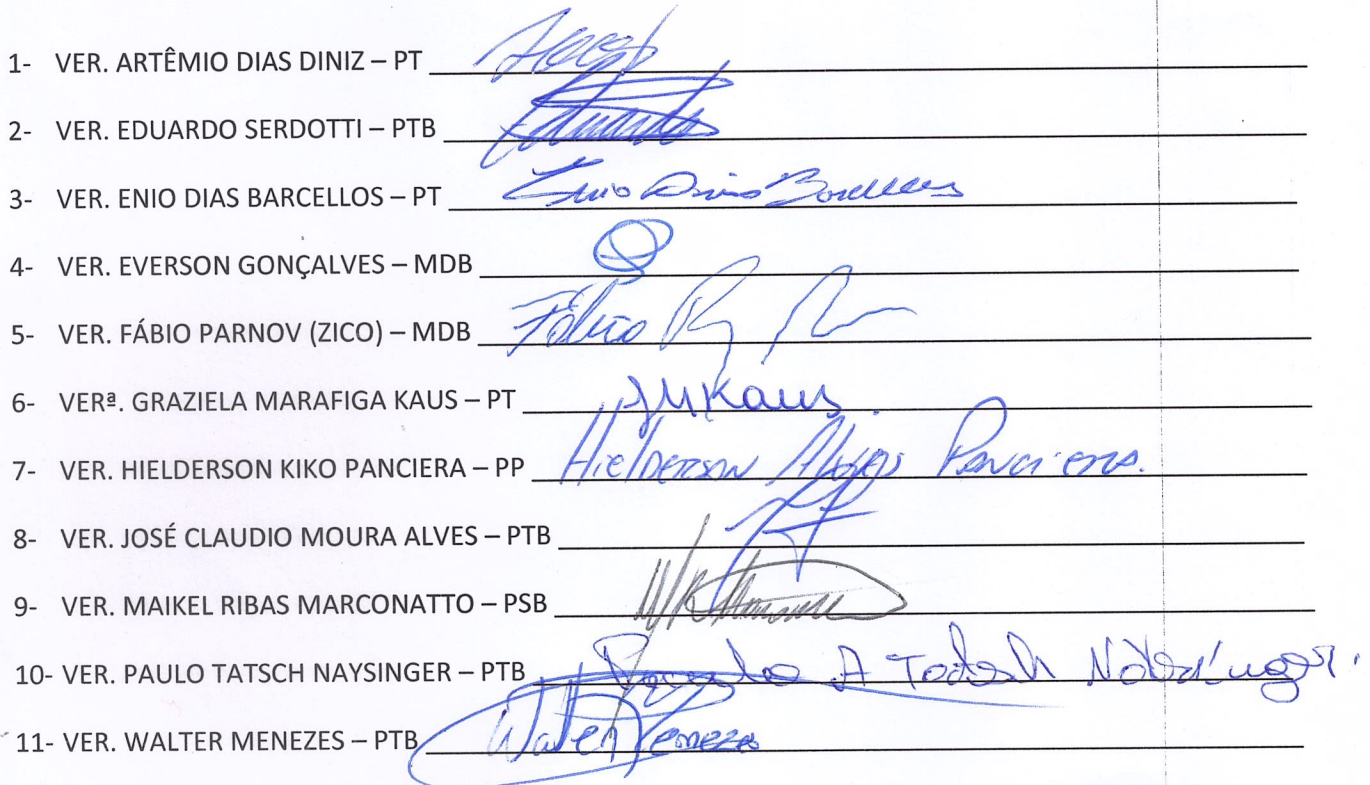 1- VER. ARTÊMIO DIAS DINIZ – PT
2- VER. EDUARDO SERDOTTI – PTB Eduardo
3- VER. ENIO DIAS BARCELLOS – PT Enio Dias Barcellos
4- VER. EVERSON GONÇALVES – MDB
5- VER. FÁBIO PARNOV (ZICO) – MDB Fábio
6- VERª. GRAZIELA MARAFIGA KAUS – PT GMKaus
7- VER. HIELDERSON KIKO PANCIERA – PP Hielderson Alves Panciera.
8- VER. JOSÉ CLAUDIO MOURA ALVES – PTB
9- VER. MAIKEL RIBAS MARCONATTO – PSB
10- VER. PAULO TATSCH NAYSINGER – PTB Paulo A Tatsch
11- VER. WALTER MENEZES – PTB Walter Menezes